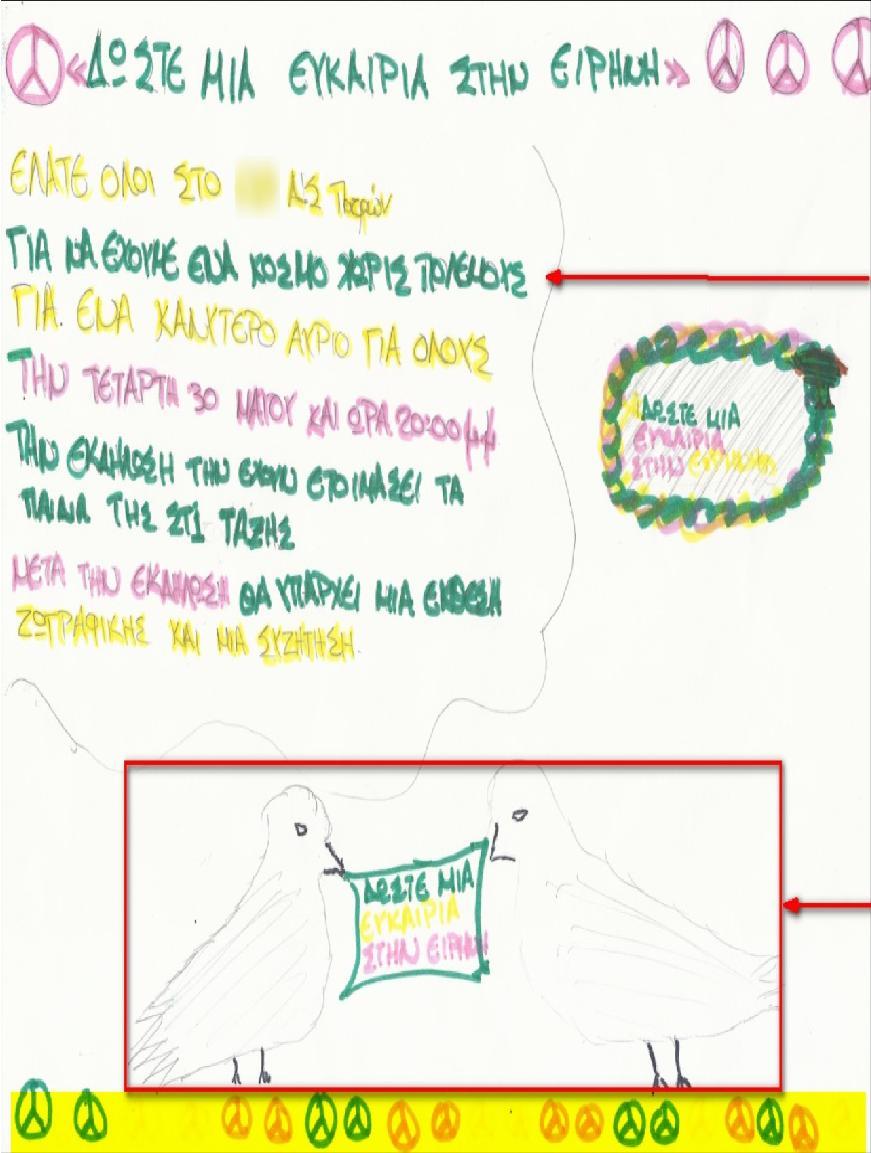 «ΔΩΣΤΕ ΜΙΑ ΕΥΚΑΙΡΙΑ ΣΤΗΝ ΕΙΡΗΝΗ»
ΕΛΑΤΕ ΟΛΟΙ ΣΤΟ ΔΣ Πατρών
ΓΙΑ ΝΑ ΕΧΟΥΜΕ ΕΝΑ ΚΟΣΜΟ ΧΩΡΙΣ ΠΟΛΕΜΟΥΣ
ΓΙΑ ΕΝΑ ΚΑΛΥΤΕΡΟ ΑΥΡΙΟ ΓΙΑ ΟΛΟΥΣ
ΤΗΝ ΤΕΤΑΡΤΗ 30 ΜΑΙΟΥ ΚΑΙ ΩΡΑ 20:00μμ
ΤΗΝ ΕΚΔΗΛΩΣΗ ΤΗΝ ΕΧΟΥΝ ΕΤΟΙΜΑΣΕΙ ΤΑ
ΠΑΙΔΙΑ ΤΗΣ ΣΤ1 ΤΑΞΗΣ
ΜΕΤΑ ΤΗΝ ΕΚΔΗΛΩΣΗ ΘΑ ΥΠΑΡΧΕΙ ΜΙΑ ΕΚΘΕΣΗ
ΖΩΓΡΑΦΙΚΗΣ ΚΑΙ ΜΙΑ ΣΥΖΗΤΗΣΗ
ΔΩΣΤΕ ΜΙΑ
ΕΥΚΑΙΡΙΑ
ΣΤΗΝ ΕΙΡΗΝΗ
ΔΩΣΤΕ ΜΙΑ
ΕΥΚΑΙΡΙΑ
ΣΤΗΝ ΕΙΡΗΝΗ